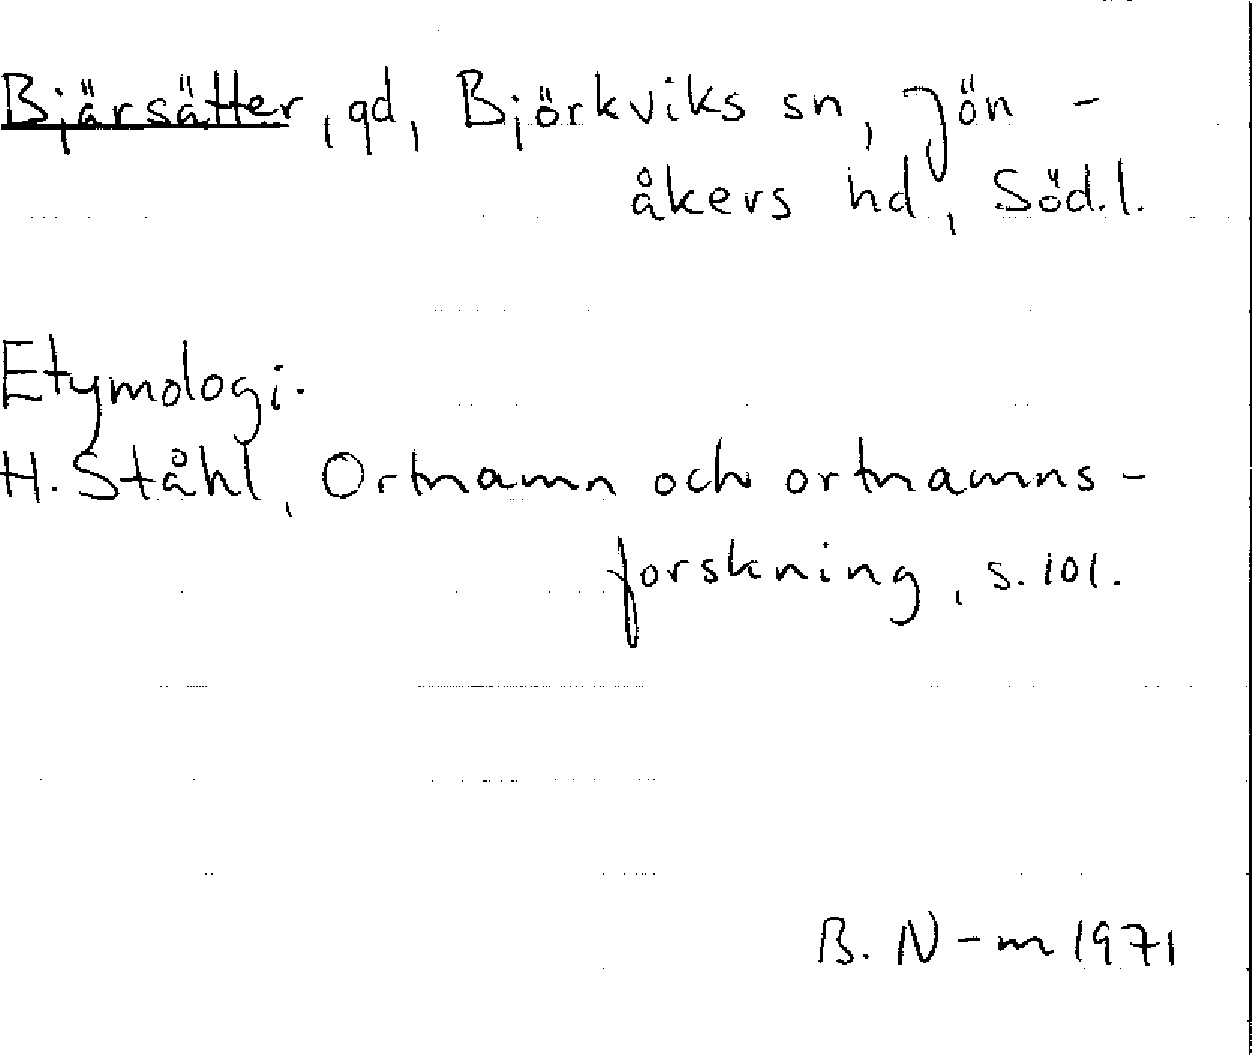 Bjärsätter, gd, Björkviks sn, Jön-
åkers hd, Söd.l.
Etymologi.
H. Ståhl, Ortnamn och ortnamns-
forskning, s. 101.
B. N-m 1971